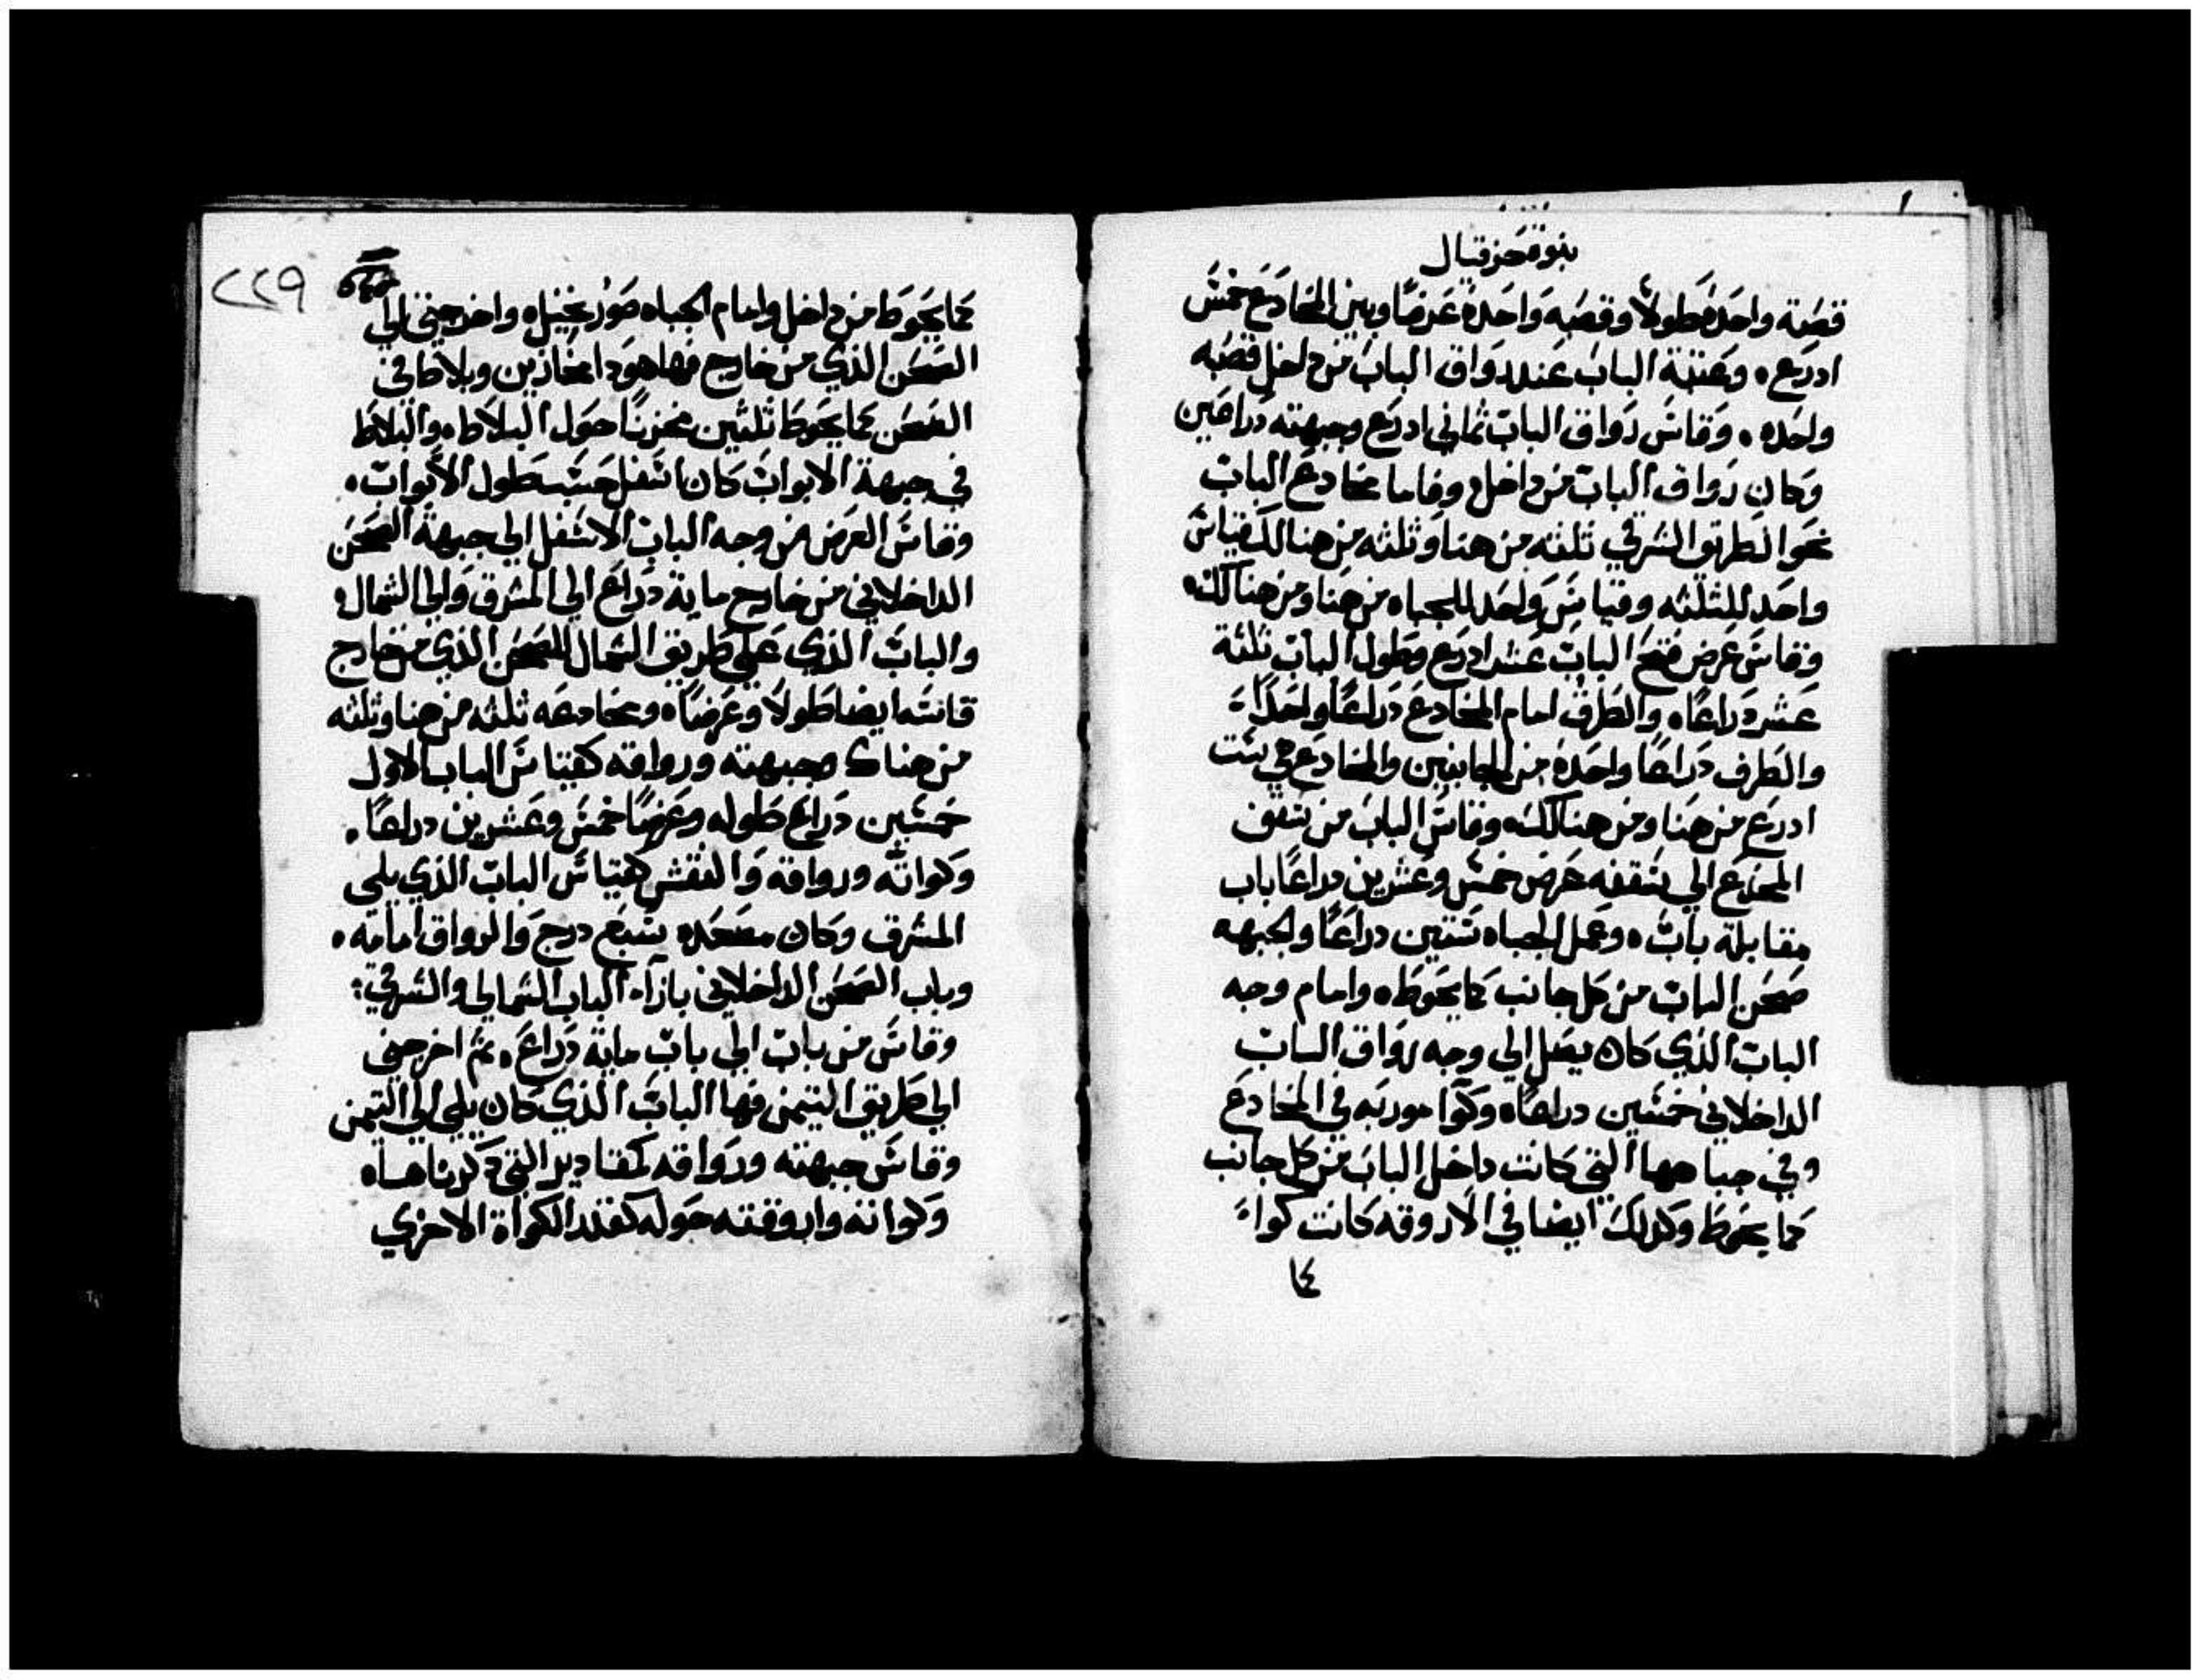 بنوة حزقيال
قصبة واحدة طولاً وقصبه واحدة عرضًا وبين المخادع خمس
ادرع. وعتبة الباب عند رواق الباب من داخل قصبه
واحده. وقاس رواق الباب ثماني ادرع وجبهته دراعين
وكان رواق الباب من داخل. وفاما مخادع الباب
نحو الطريق الشرقي ثلثه من هنا وثلثه من هنالك قياس
واحد للثلثه وقياس واحد للجباه من هنا ومن هنالك.
وقاس عرض فتح الباب عشر ادرع وطول الباب ثلثة
عشر دراعًا. والطرف امام المخادع دراعًا واحدًا.
والطرف دراعًا واحدة من الجانبين والمخادع في ست
ادرع من هنا ومن هنالك. وقاس الباب من سقف
المخدع الي سقفه عرض خمس وعشرين دراعًا باب
مقابلة باب. وعمل الجباه ستين دراعًا ولجبهه
صحن الباب من كل جانب كما يحوط. وامام وجه
الباب الذي كان يصل الي وجه رواق الباب
الداخلاني خمسين دراعًا. وكوا موربه في المخادع
وفي جباهها التي كانت داخل الباب من كل جانب
كما يحوط وكدلك ايضا في الاروقه كانت كواء
٤١
٢٢٩
كما يحوط من داخل وامام الجباه صور نخيل. واخرجني الي
الصحن الذي من خارج فها هودا مخازين وبلاطا في
الصحن كما يحوط ثلثين مخزنًا حول البلاط. والبلاط
في جبهة الابواب كان اسفل حسب طول الابواب.
وقاس العرض من وجه الباب الاسفل الي جبهة الصحن
الداخلاني من خارج ماية دراع الي المشرق والي الشمال.
والباب الذي علي طريق الشمال للصحن الذي من خارج
قاسه ايضا طولاً وعرضًا. ومخادعه ثلثه من هنا وثلثه
من هناك وجبهته ورواقه كقياس الباب الاول
خمسين دراع طوله وعرضًا خمس وعشرين دراعًا.
وكواته ورواقه والنقش كقياس الباب الذي يلي
المشرق وكان مصعده سبع درج والرواق امامه.
وباب الصحن الداخلاني بازآء الباب الشمالي والشرقي:
وقاس من باب الي باب ماية دراع. ثم اخرجني
الي طريق التيمن فها الباب الذي كان يلي الي التيمن
وقاس جبهته ورواقه كمقادير التي ذكرناها.
وكواته واروقته حوله كقدر الكواة الاخري